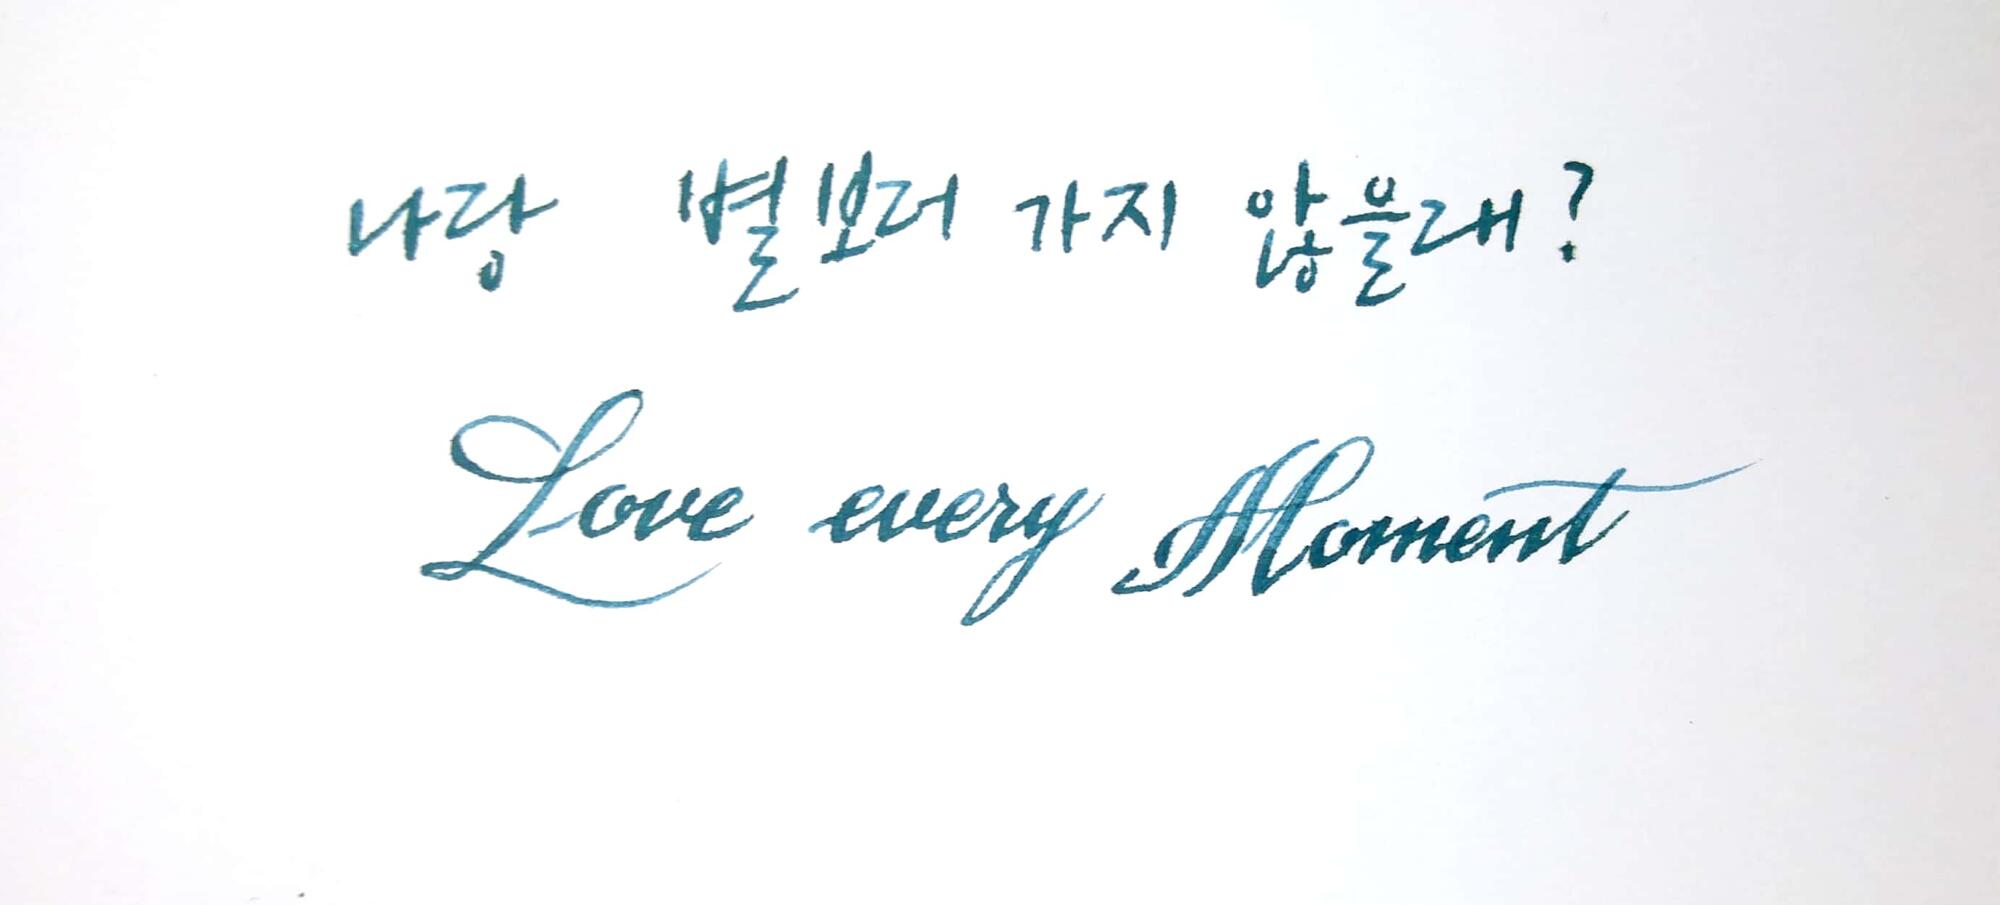 나랑 별보러 가지 않을래?
Love every Moment